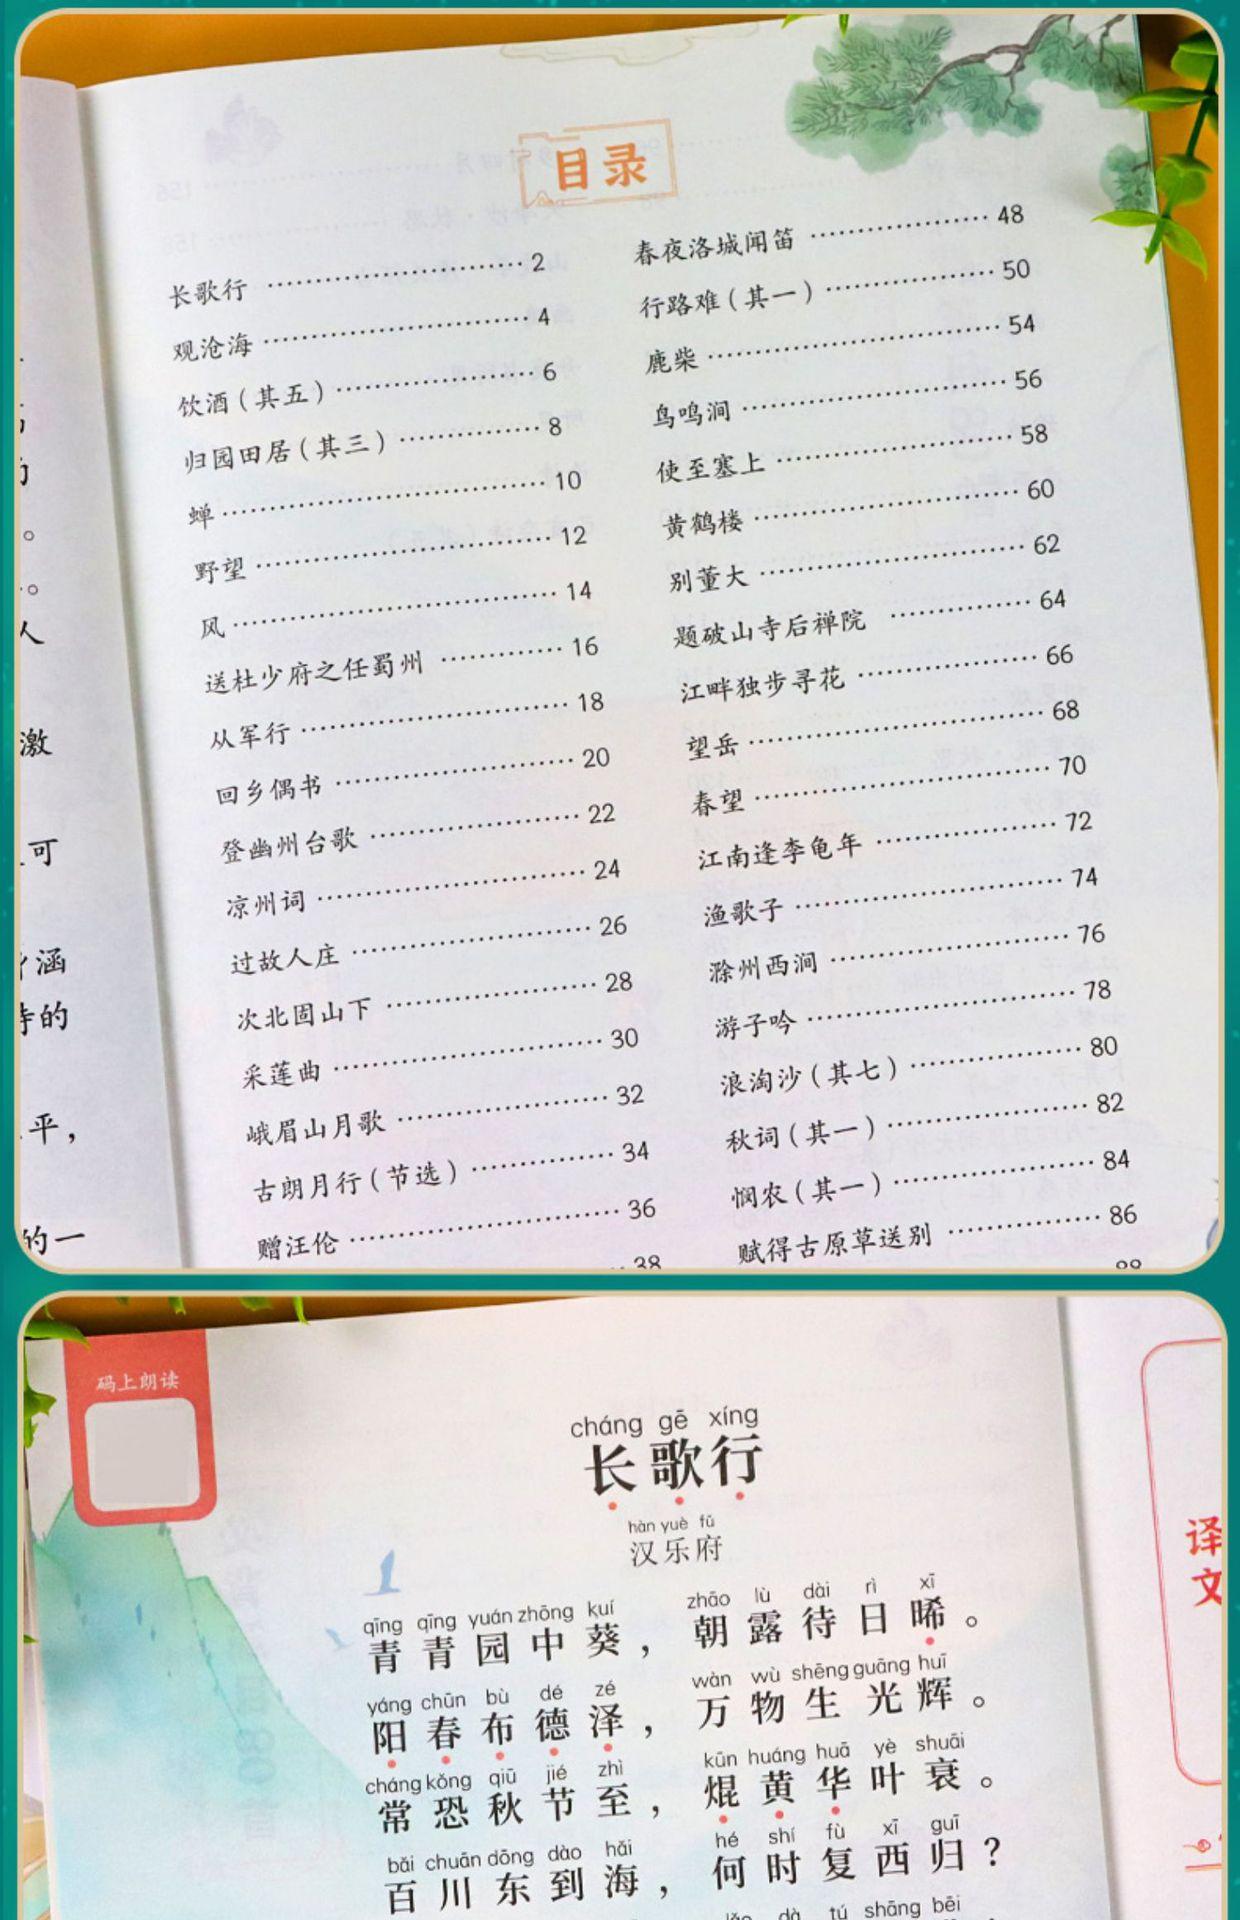 目录
长歌行 2
观沧海 4
饮酒（其五） 6
归园田居（其三） 8
蝉 10
野望 12
风 14
送杜少府之任蜀州 16
从军行 18
回乡偶书 20
登幽州台歌 22
凉州词 24
过故人庄 26
次北固山下 28
采莲曲 30
峨眉山月歌 32
古朗月行（节选） 34
赠汪伦 36
38
春夜洛城闻笛 48
行路难（其一） 50
鹿柴 54
鸟鸣涧 56
使至塞上 58
黄鹤楼 60
别董大 62
题破山寺后禅院 64
江畔独步寻花 66
望岳 68
春望 70
江南逢李龟年 72
渔歌子 74
滁州西涧 76
游子吟 78
浪淘沙（其七） 80
秋词（其一） 82
悯农（其一） 84
赋得古原草送别 86
88
。
人
激
可
涵
的
平，
的一
码上朗读
cháng gē xíng
长歌行
hàn yuè fǔ
汉乐府
qīng qīng yuán zhōng kuí zhāo lù dài rì xī
青青园中葵，朝露待日晞。
yáng chūn bù dé zé wàn wù shēng guāng huī
阳春布德泽，万物生光辉。
cháng kǒng qiū jié zhì kūn huáng huā yè shuāi
常恐秋节至，焜黄华叶衰。
bǎi chuān dōng dào hǎi hé shí fù xī guī
百川东到海，何时复西归？
dà tú shāng bēi
译
文